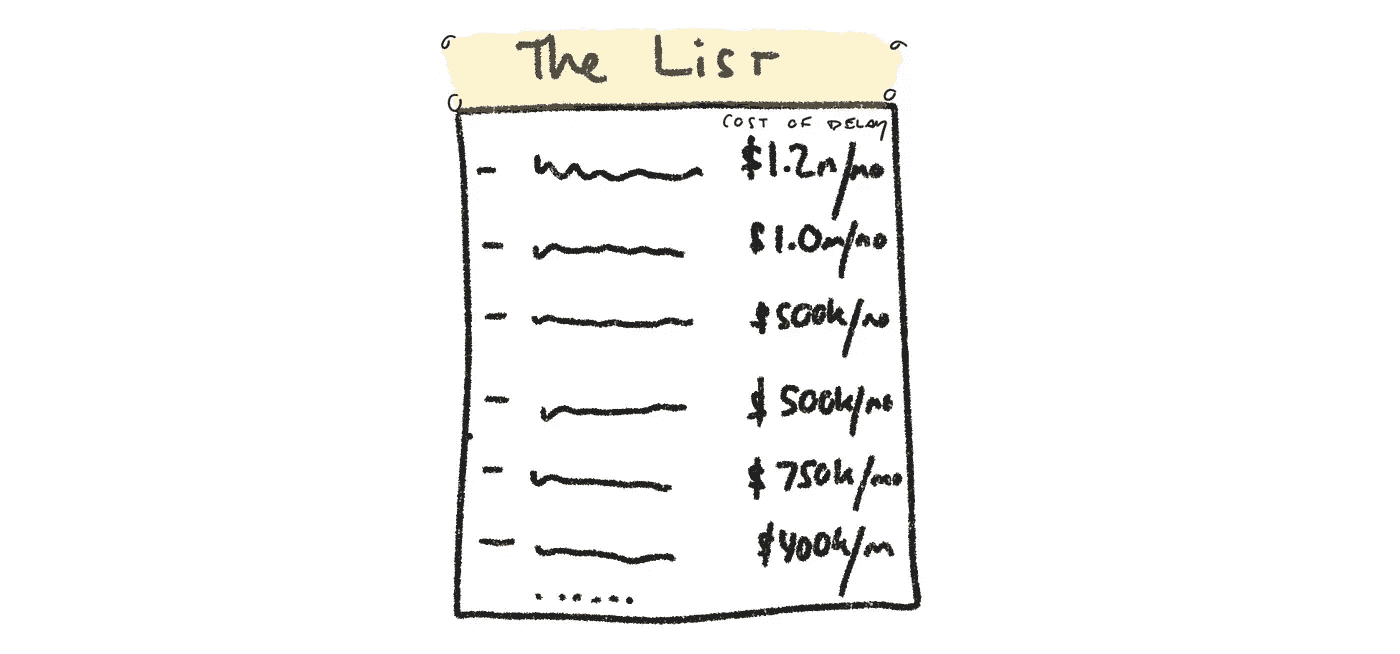 The List
COST OF DELAY
$1.2m/mo
$1.0m/mo
$500k/mo
$500k/mo
$750k/mo
$400k/m